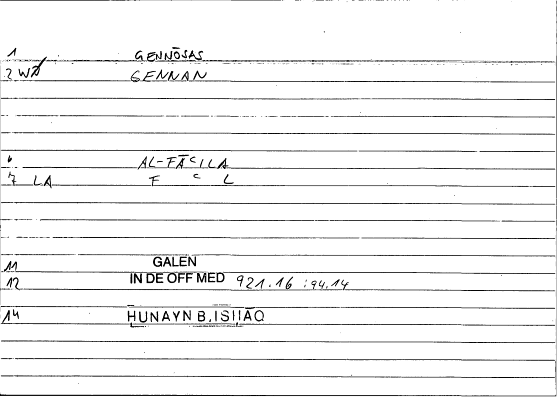 1 GENNŌSAS
2 WA GENNAN
6 AL-FĀᶜILA
7 LA F ᶜ L
11 GALEN
12 IN DE OFF MED 921.16 : 94.14
14 HUNAYN B. ISḤĀQ